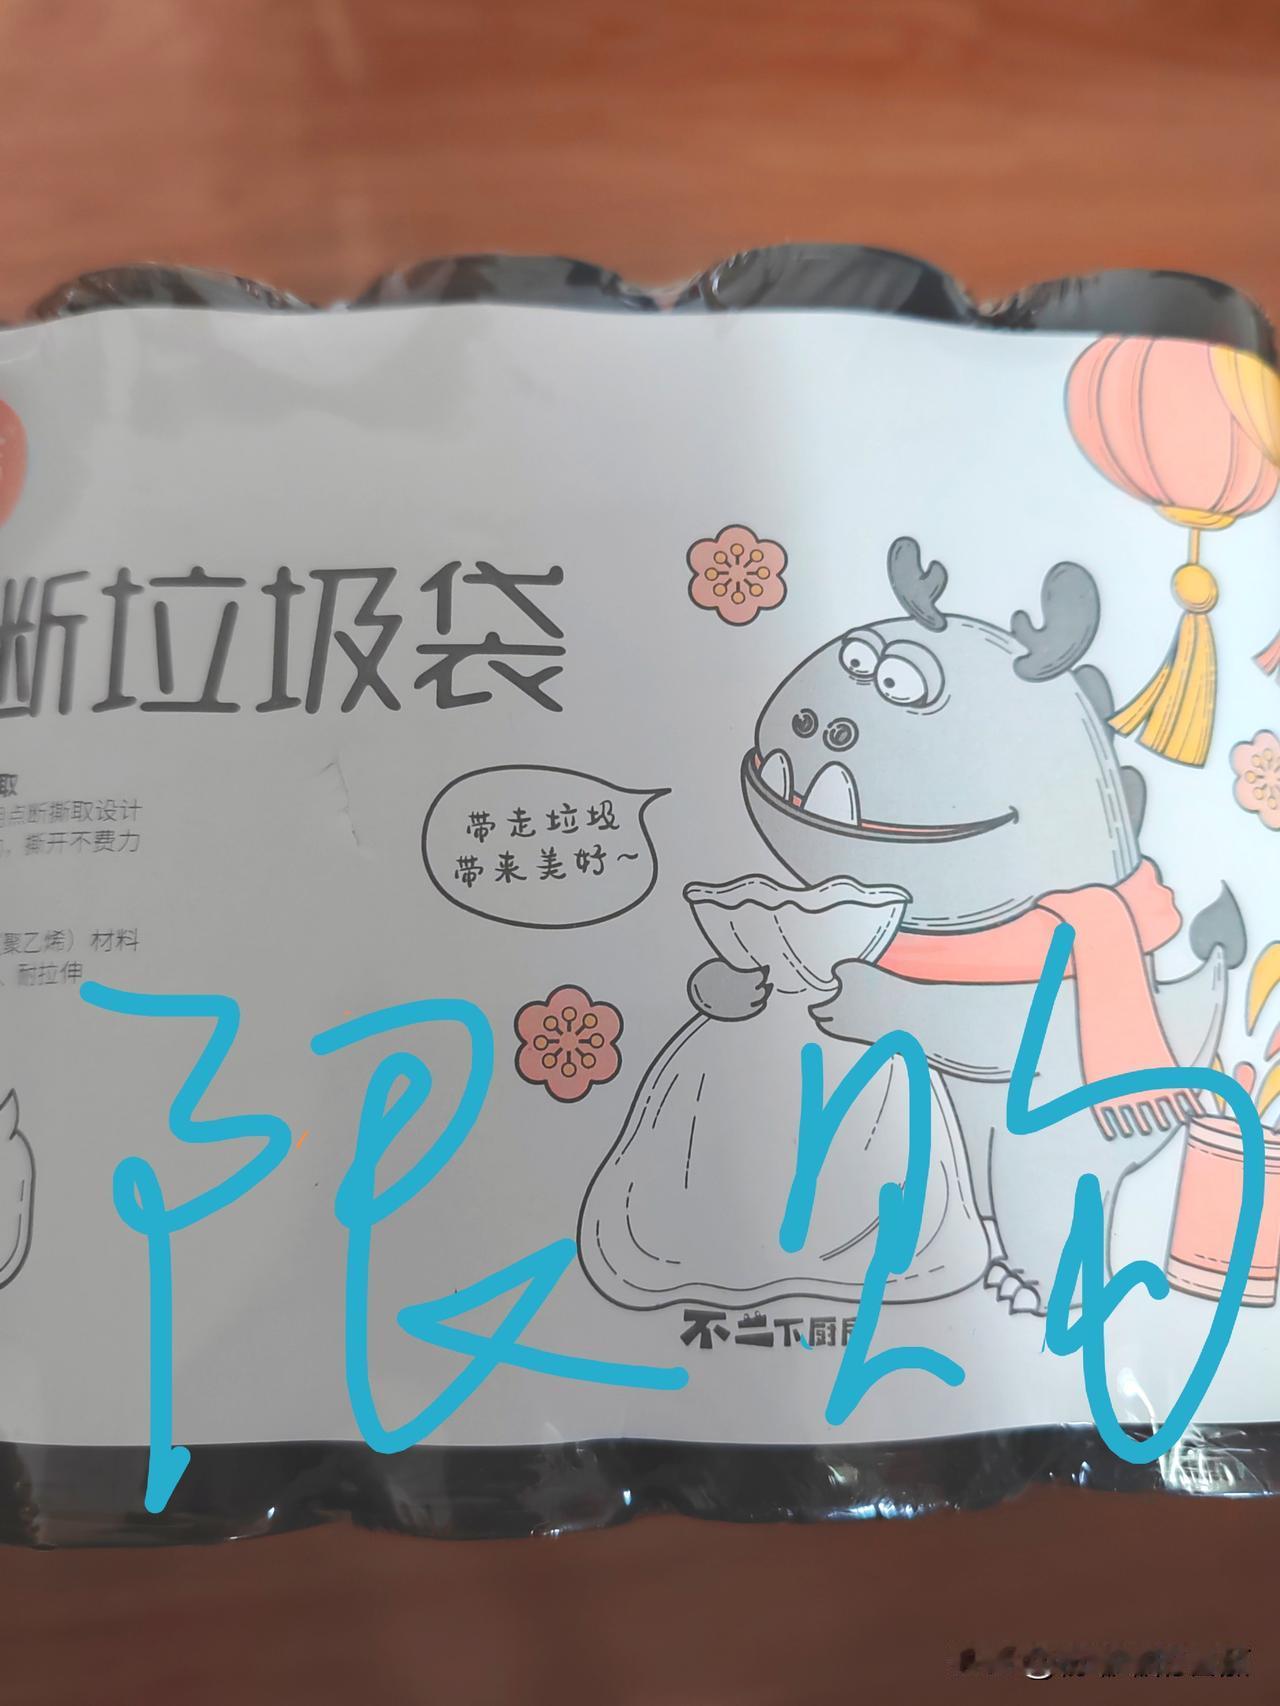 断垃圾袋
取
点断撕取设计
，撕开不费力
带走垃圾
带来美好~
（聚乙烯）材料
、耐拉伸
不二下厨